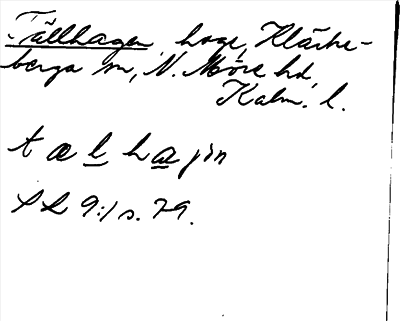 Tällhagen, hage, Kläcke-
berga sn, N. Möre hd,
Kalm. l.
t æ l h a jin
SL 9:1 s. 79.